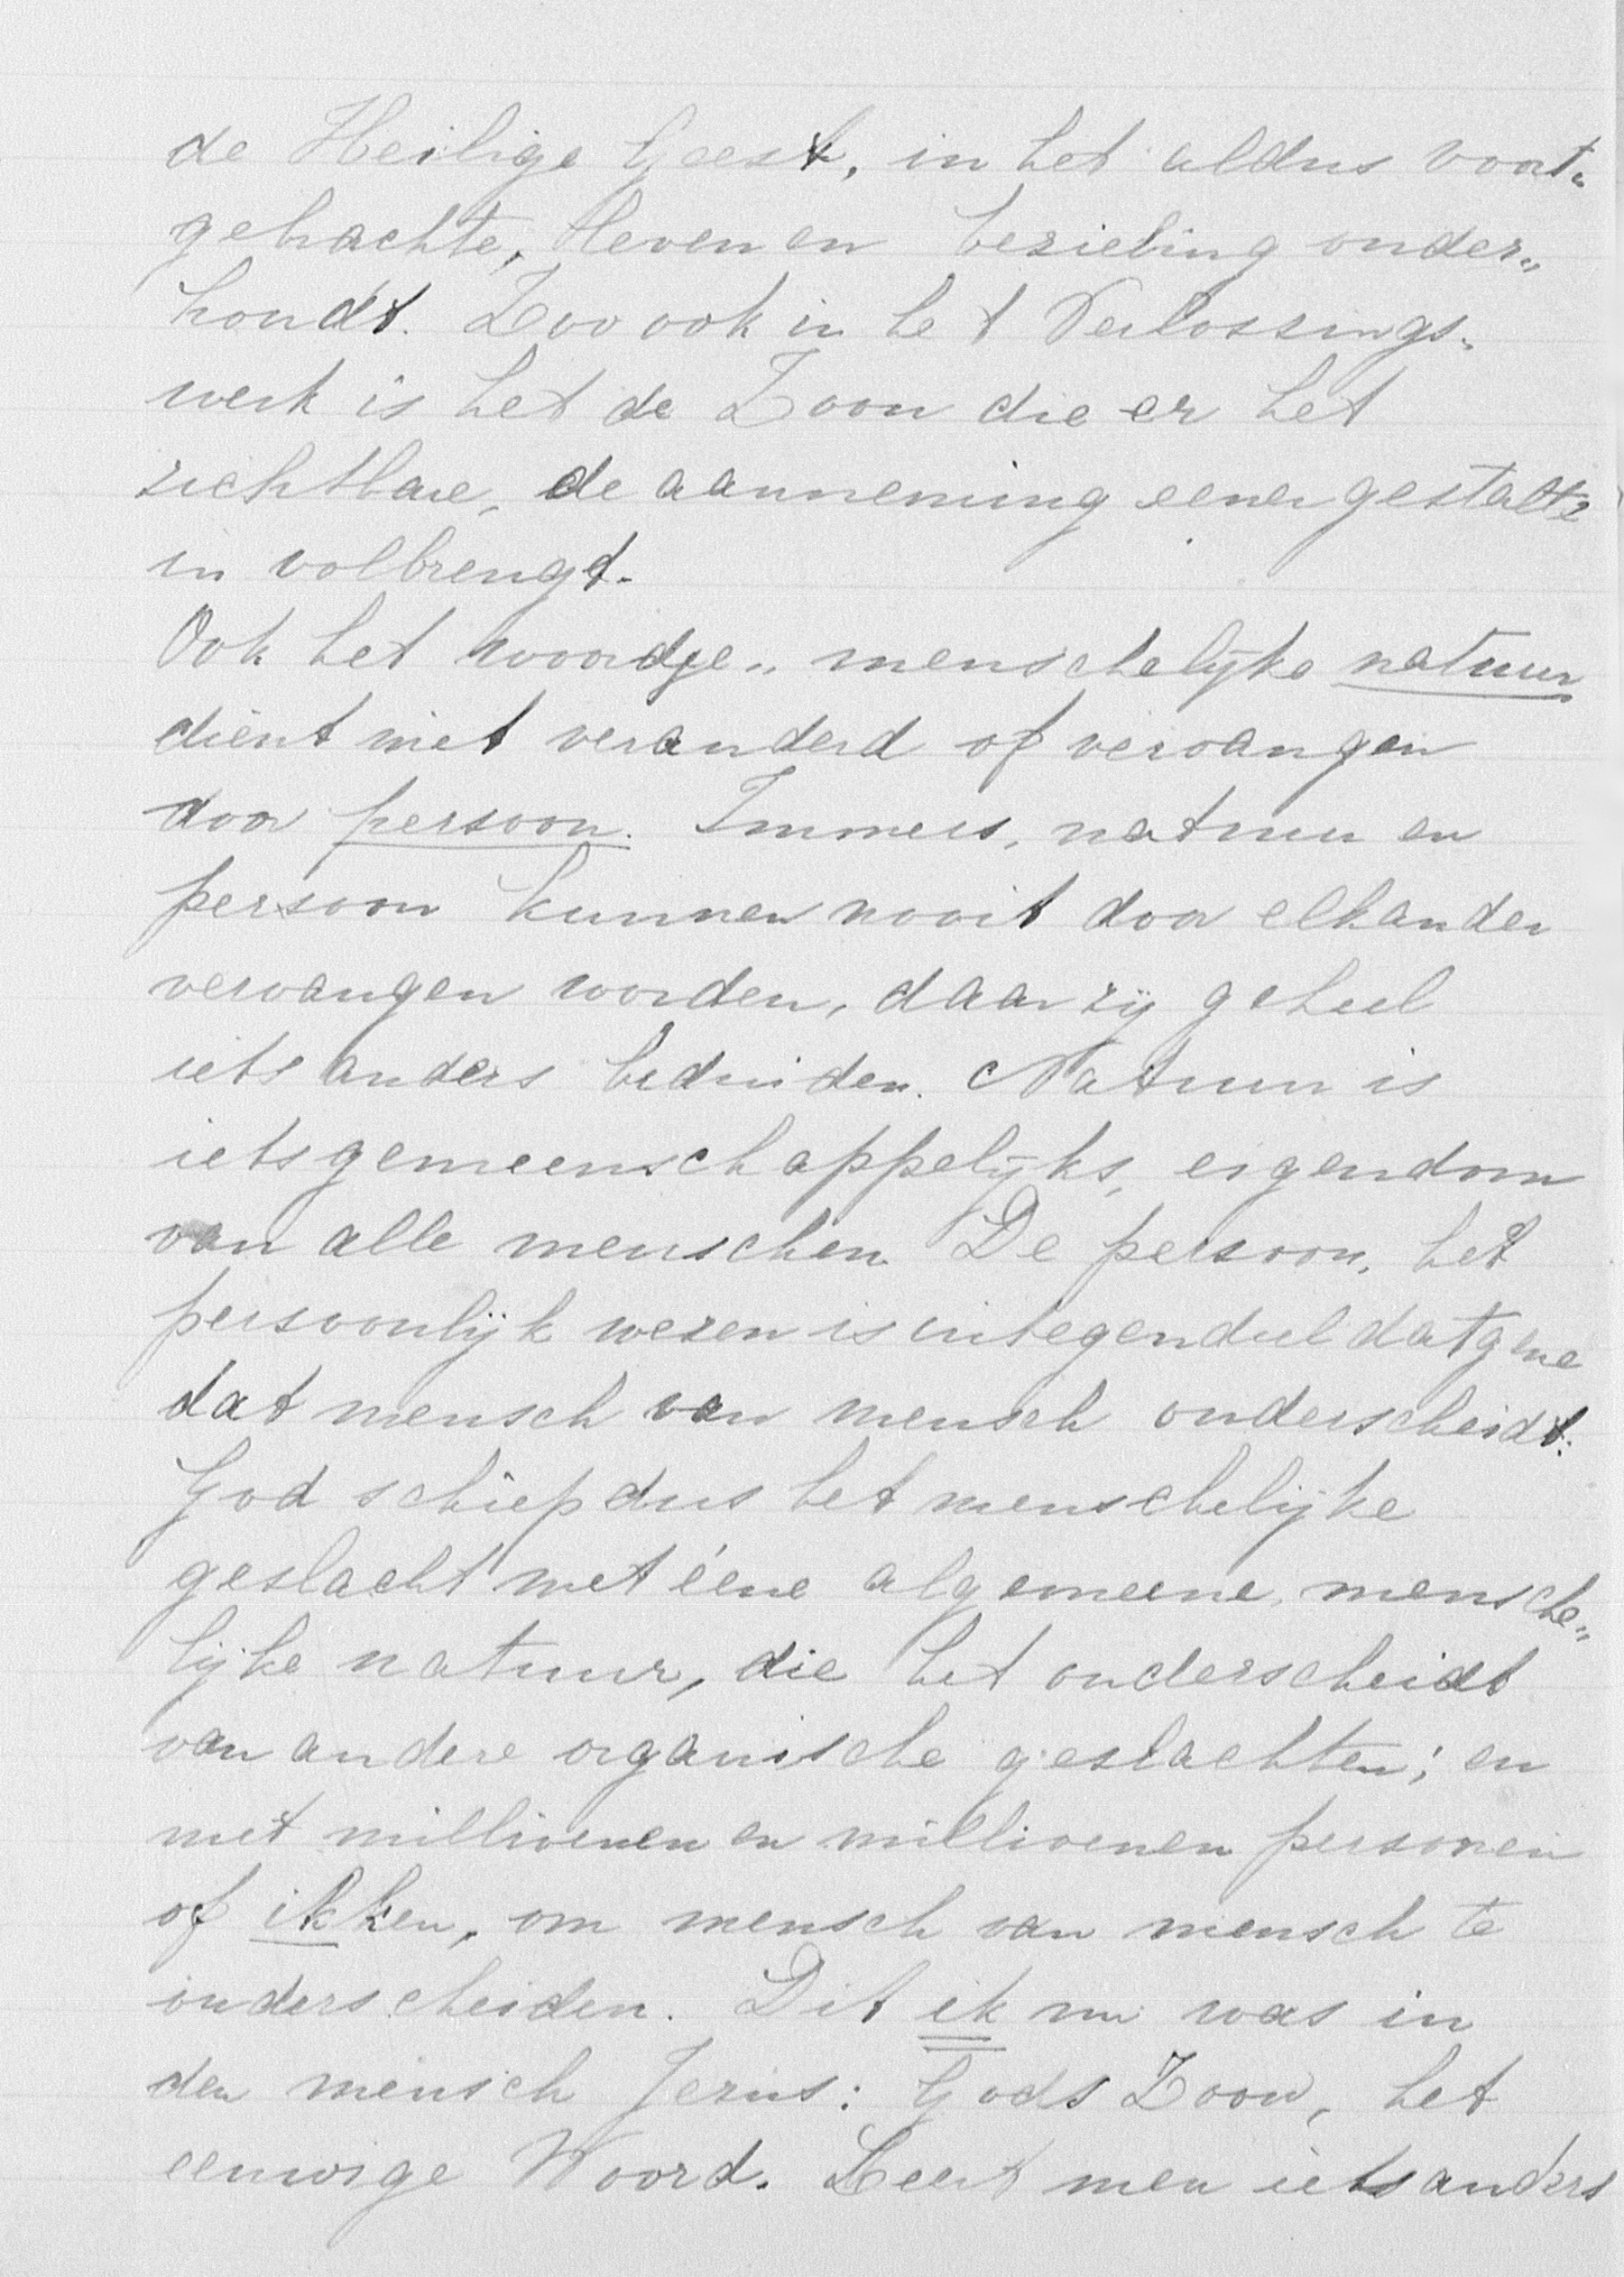 de Heilige Geest, in het aldus voort„
gebrachte, leven en bezieling onder„
houdt. Zoo ook in het Verlossings„
werk is het de Zoon die er het
zichtbare, de aanneming eener gestalte
in volbrengt.
Ook het woordje „ menschelijke natuur
dient niet veranderd of vervangen
door persoon. Immers, natuur en
persoon kunnen nooit door elkander
vervangen worden, daar zij geheel
iets anders beduiden. Natuur is
iets gemeenschappelijks, eigendom
van alle menschen. De persoon, het
persoonlijk wezen is integendeel datgene
dat mensch van mensch onderscheidt.
God schiep dus het menschelijke
geslacht met ééne algemeene, mensche„
lijke natuur, die het onderscheidt
van andere organische geslachten; en
met millioenen en millioenen personen
of ikken, om mensch van mensch te
onderscheiden. Dit ik nu was in
den mensch Jezus: Gods Zoon, het
eeuwige Woord. Leert men iets anders